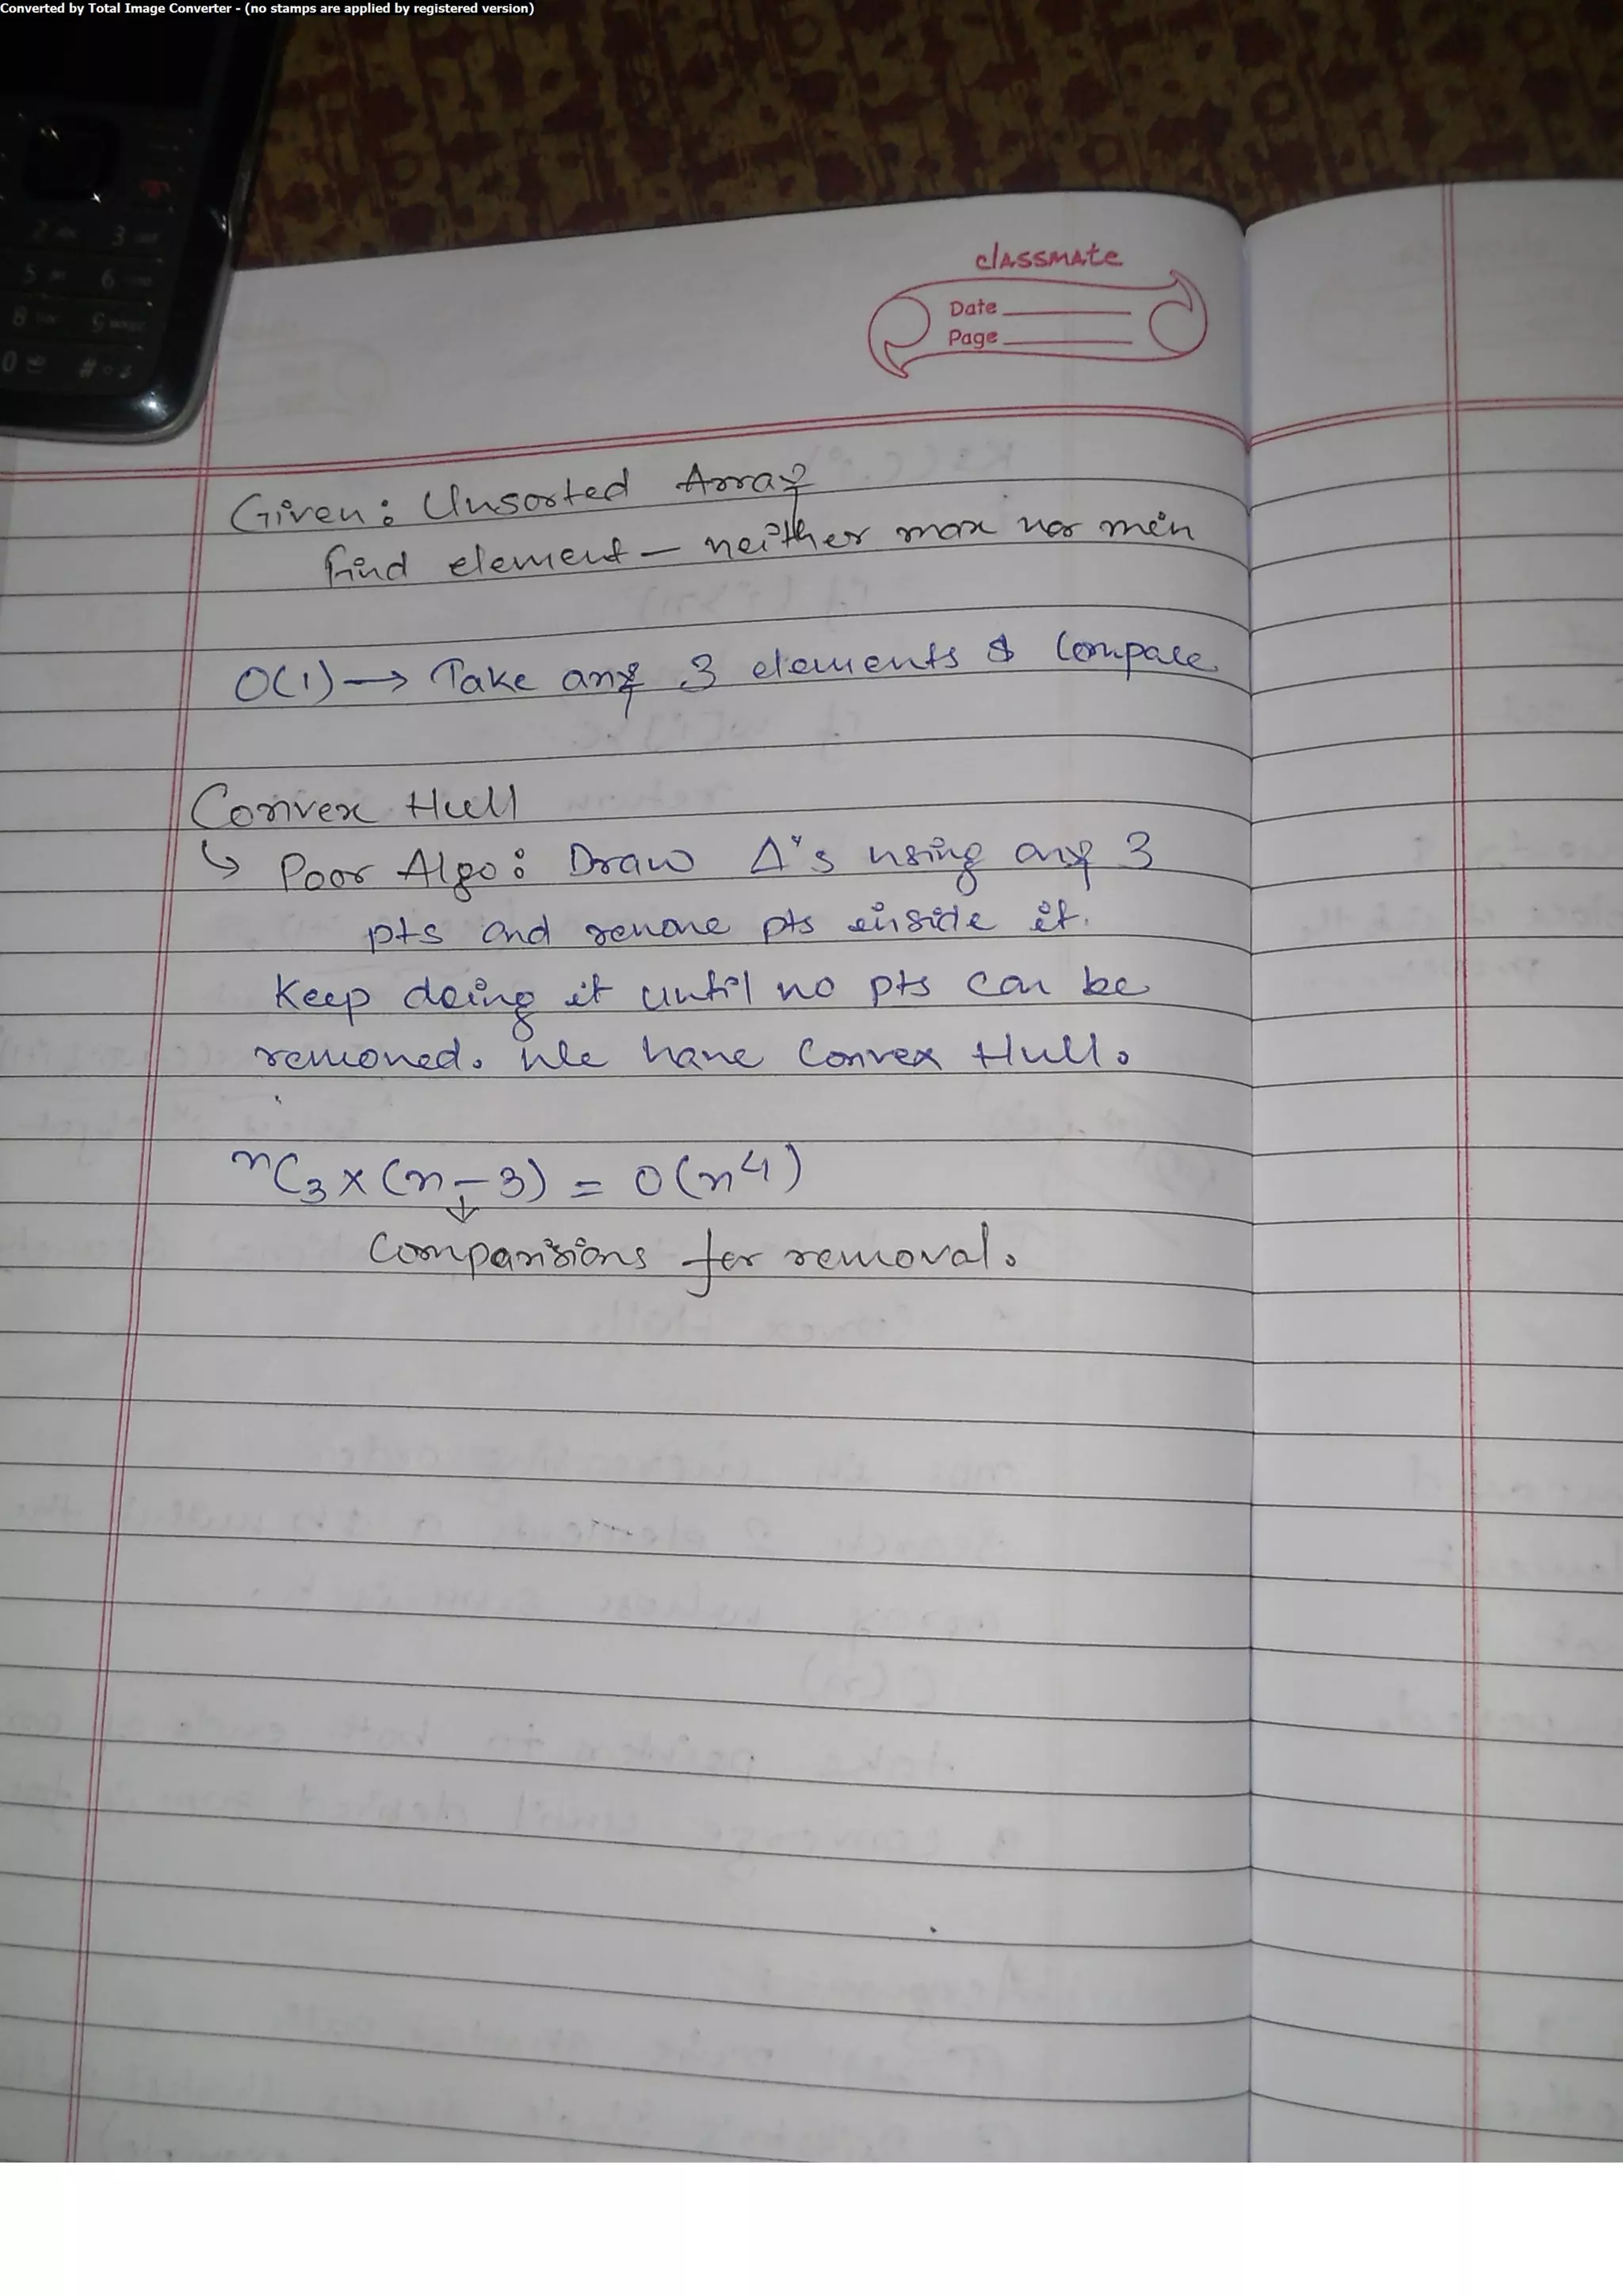 Converted by Total Image Converter - (no stamps are applied by registered version)
classmate
Date
Page
Given: Unsorted Array
find element — neither max nor min
O(1) → Take any 3 elements & Compare
Convex Hull
↳ Poor Algo: Draw Δ's using any 3
pts and remove pts inside it.
Keep doing it until no pts can be
removed. We have Convex Hull.
ⁿC₃ × (n-3) = O(n⁴)
↓
Comparisions for removal.